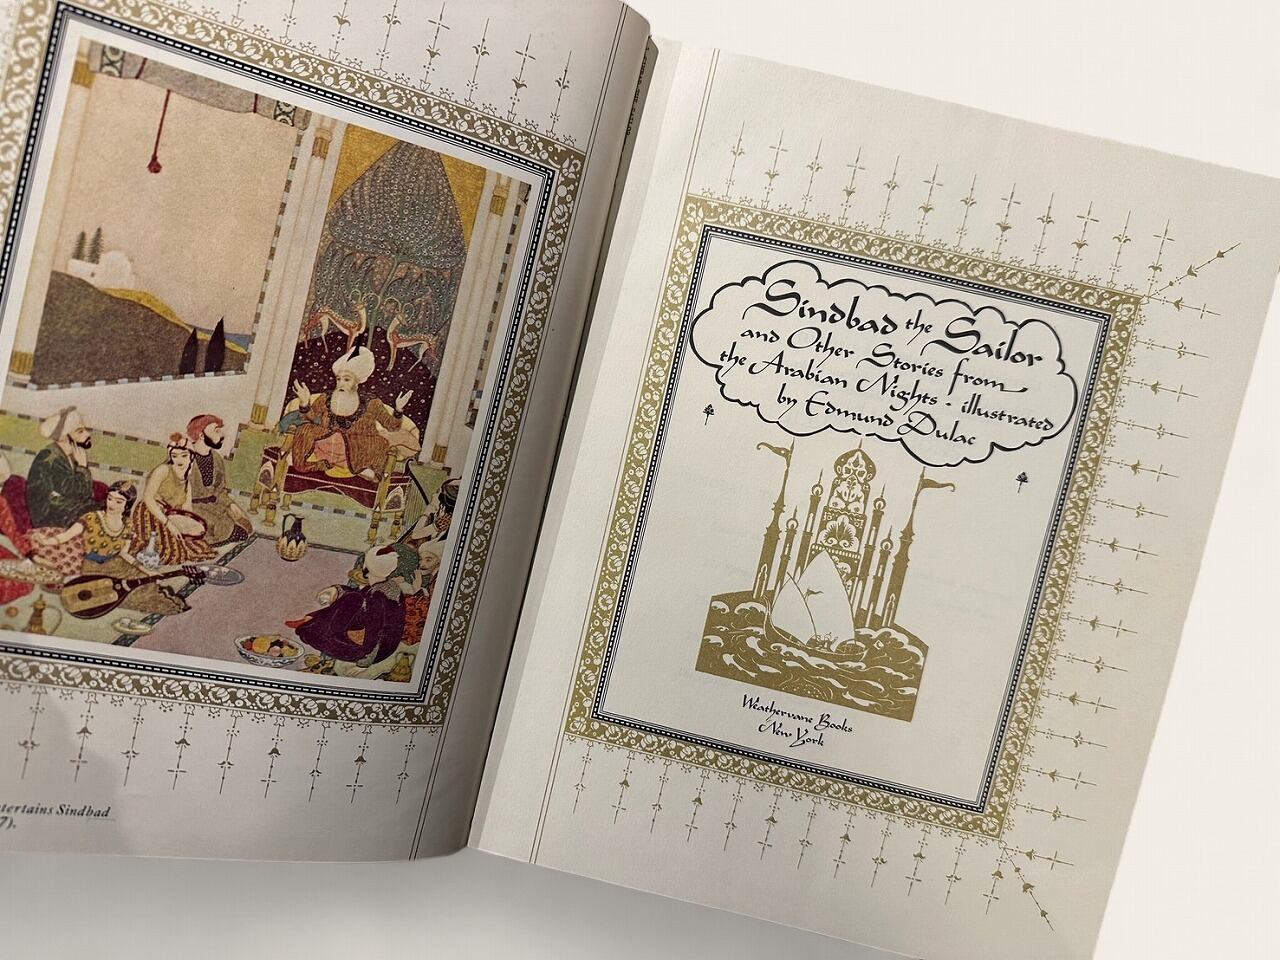 ntertains Sindbad
7).
Sindbad the Sailor
and Other Stories from
the Arabian Nights · illustrated
by Edmund Dulac
Weathervane Books
New York